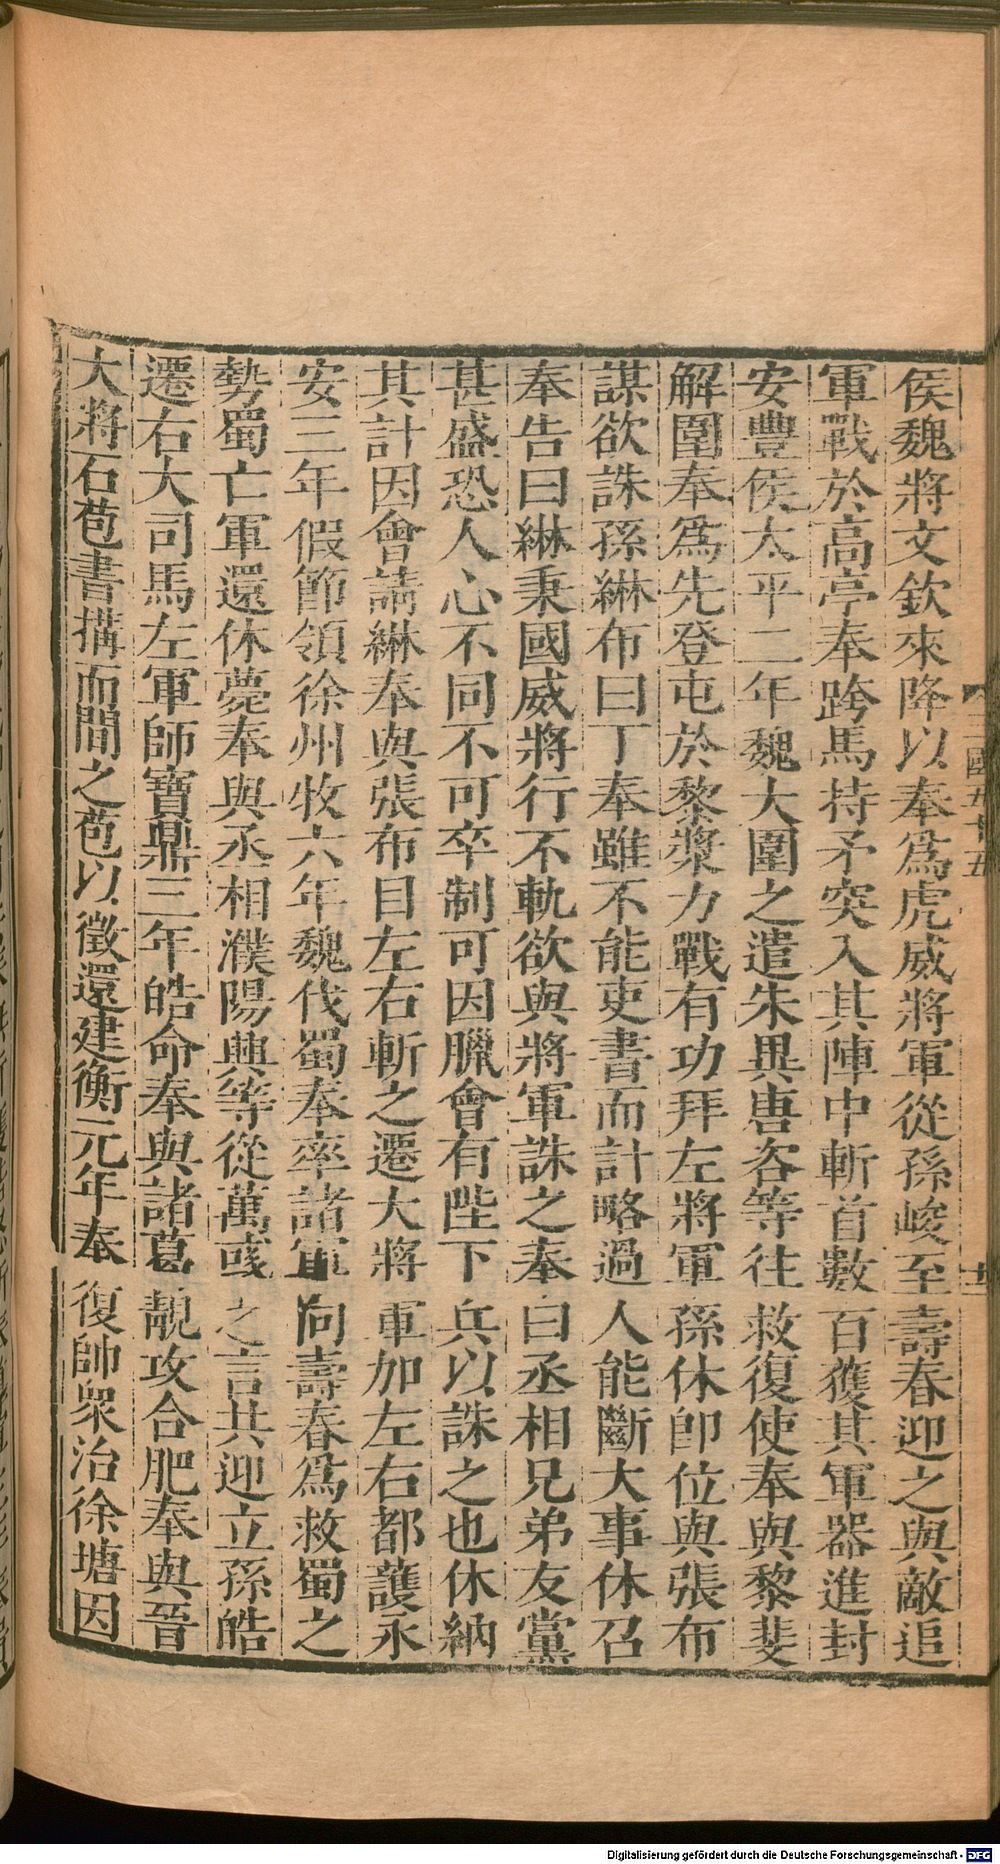 侯魏將文欽來降以奉爲虎威將軍從孫峻至壽春迎之與敵追
軍戰於高亭奉跨馬持矛突入其陣中斬首數百獲其軍器進封
安豐侯太平二年魏大圍之遣朱異唐咨等往救復使奉與黎斐
解圍奉爲先登屯於黎漿力戰有功拜左將軍孫休卽位與張布
謀欲誅孫綝布曰丁奉雖不能吏書而計略過人能斷大事休召
奉告曰綝秉國威將行不軌欲與將軍誅之奉曰丞相兄弟友黨
甚盛恐人心不同不可卒制可因臘會有陛下兵以誅之也休納
其計因會請綝奉與張布目左右斬之遷大將軍加左右都護永
安三年假節領徐州牧六年魏伐蜀奉率諸軍向壽春爲救蜀之
勢蜀亡軍還休薨奉與丞相濮陽興等從萬彧之言共迎立孫皓
遷右大司馬左軍師寶鼎三年皓命奉與諸葛靚攻合肥奉與晉
大將石苞書搆而間之苞以徵還建衡元年奉復帥衆治徐塘因
三國五十五
十一
Digitalisierung gefördert durch die Deutsche Forschungsgemeinschaft - DFG